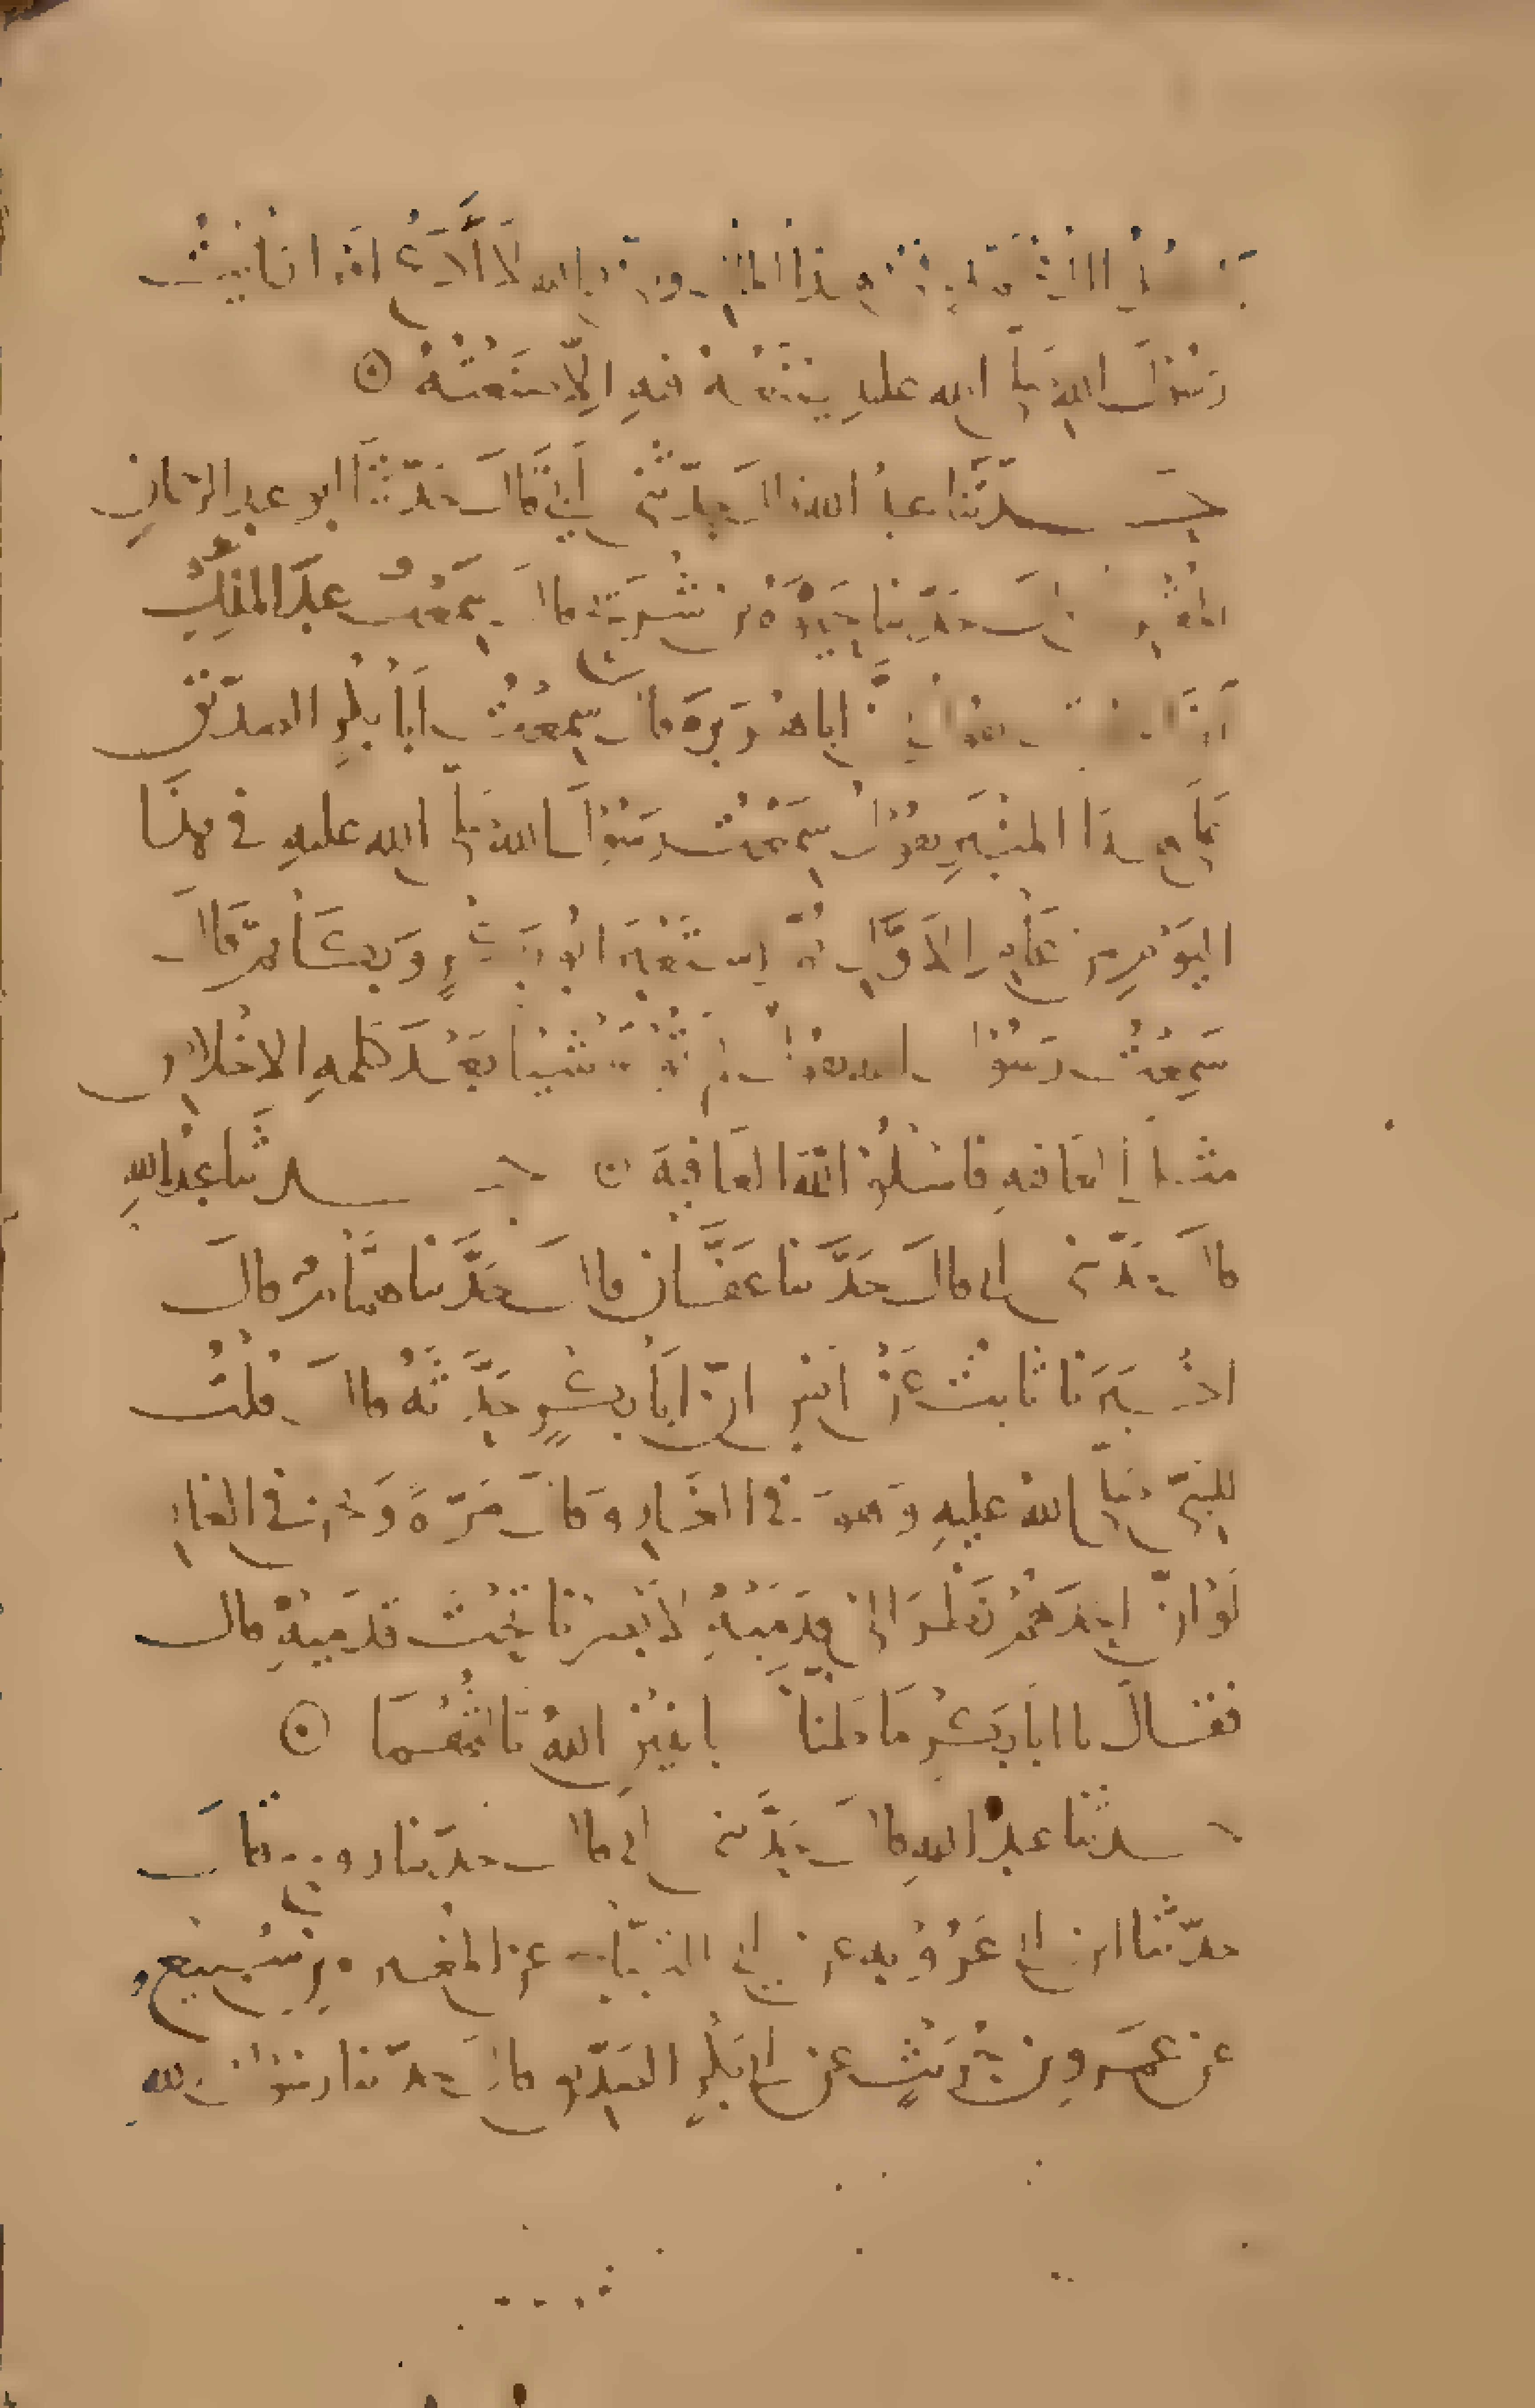 لا أدع أمرا رأيت
رسول الله صلى الله عليه يصنعه فيه إلا صنعته
حدثنا عبد الله قال حدثني أبي قال حدثنا أبو عبد الرحمن
المقرئ قال حدثنا حيوة بن شريح قال سمعت عبد الملك
يقول إن أبا هريرة قال سمعت أبا بكر الصديق
على هذا المنبر يقول سمعت رسول الله صلى الله عليه في هذا
اليوم من عام الأول ثم استعبر أبو بكر وبكا ثم قال
سمعت رسول الله يقول لم تؤتوا شيئا بعد كلمة الإخلاص
مثل العافية فاسلوا الله العافية حدثنا عبد الله
قال حدثني أبي قال حدثنا عفان قال حدثنا همام قال
اخبرنا ثابت عن أنس ان أبا بكر حدثه قال قلت
للنبي صلى الله عليه وهو في الغار وقال مرة ونحن في الغار
لو ان احدهم نظر الى قدميه لابصرنا تحت قدميه قال
فقال يا أبا بكر ما ظنك باثنين الله ثالثهما
حدثنا عبد الله قال حدثني أبي قال حدثنا روح قال
حدثنا ابن أبي عروبة عن أبي التياح عن المغيرة بن سبيع
عن عمرو بن حريث عن أبي بكر الصديق قال حدثنا رسول الله